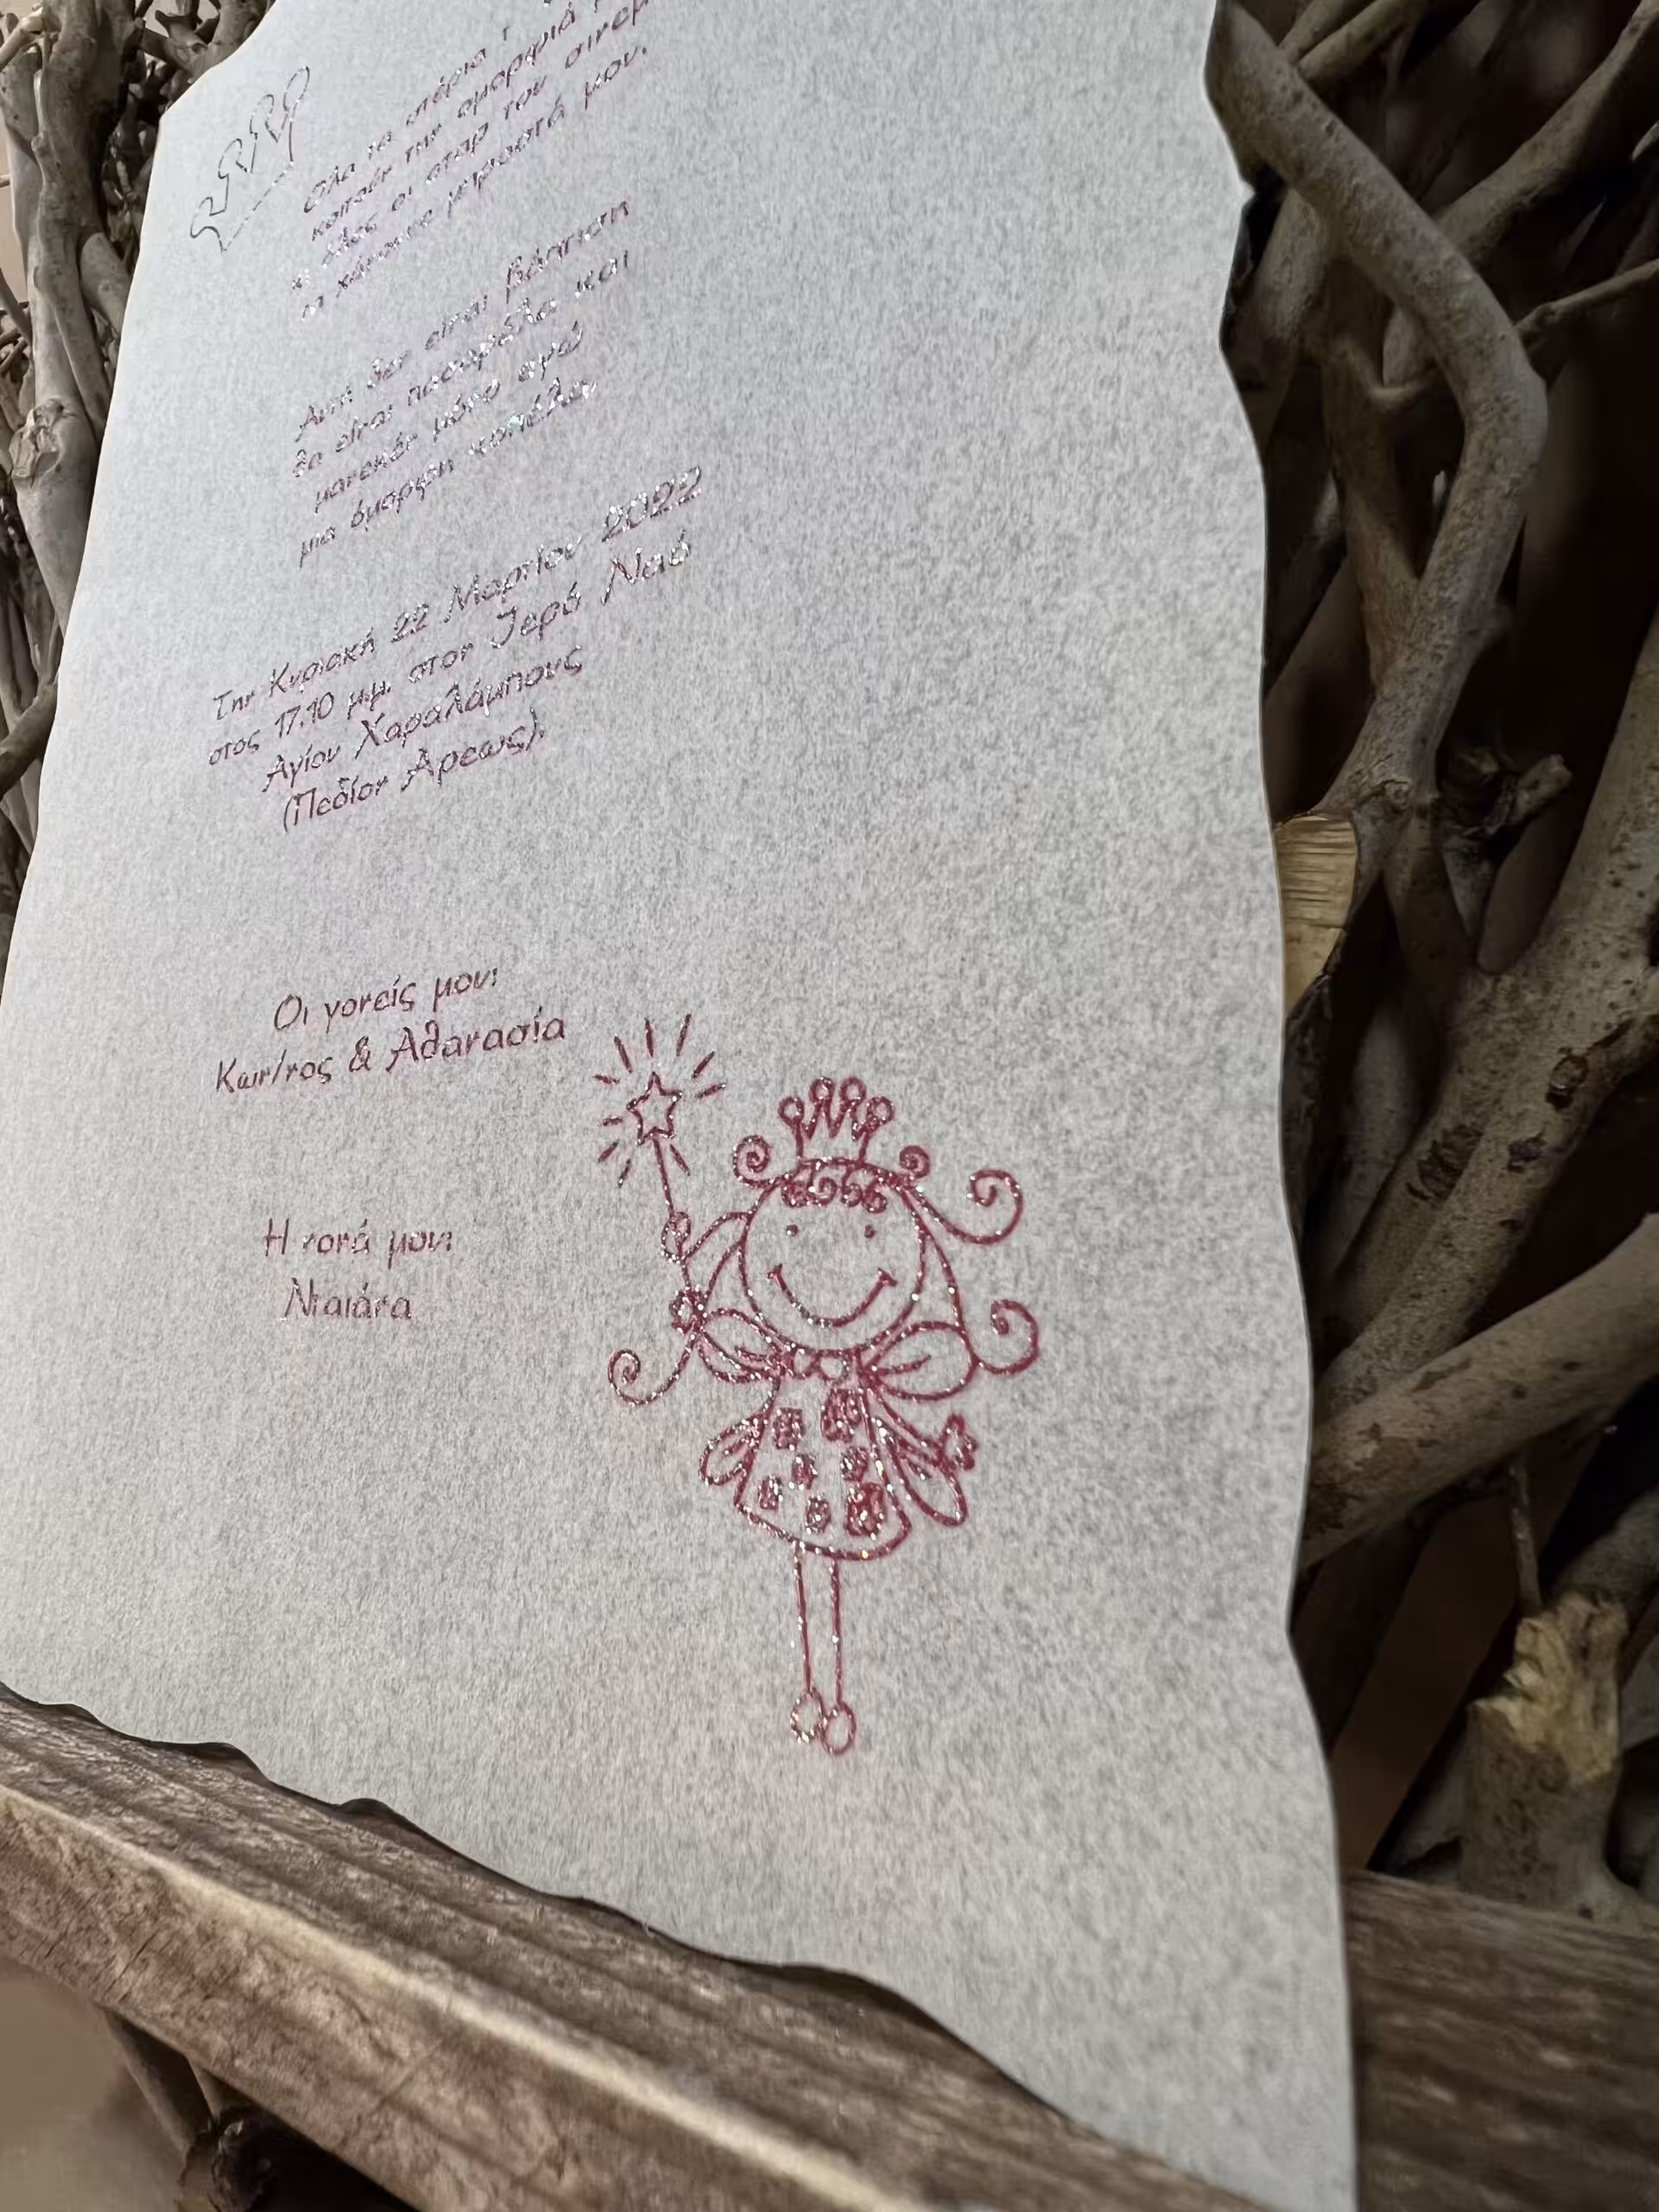 Όλα τα αστέρια
κοιτούν την ομορφιά
κι όλοι οι σταρ του σινεμ
τα χάνουνε μπροστά μου.
Αυτή δεν είναι βάπτιση
θα είναι πασαρέλα και
μανεκέν μόνο εγώ
μια όμορφη κοπέλα.
Την Κυριακή 22 Μαρτίου 2022
στος 17.10 μ.μ. στον Ιερό Ναό
Αγίου Χαραλάμπους
(Πεδίον Άρεως).
Οι γονείς μου:
Κων/νος & Αθανασία
Η νονά μου:
Νταιάνα